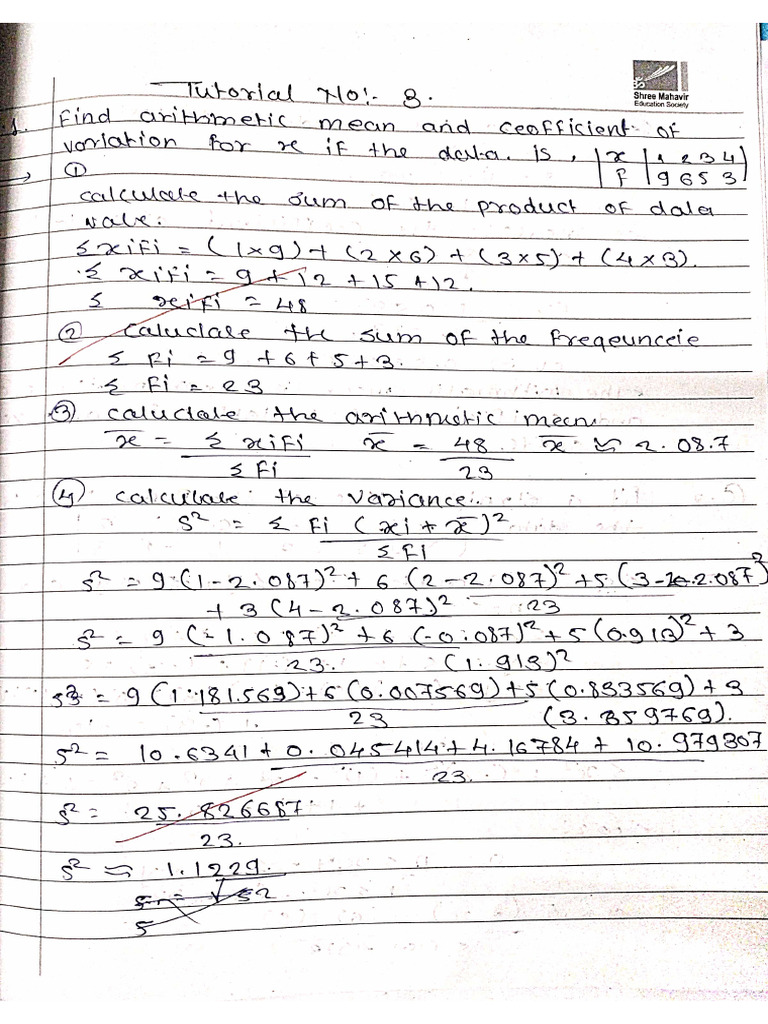 Shree Mahavir
Education Society
Tutorial No:- 8.
1. Find arithmetic mean and ceofficient of
variation for x if the data. is, | x | 1 2 3 4 |
→ ① | F | 9 6 5 3 |
calculate the sum of the product of data
vale.
Σxifi = (1×9) + (2×6) + (3×5) + (4×3).
Σ xifi = 9 + 12 + 15 + 12.
Σ xifi = 48
② caluclate the sum of the freqeunceie
Σ Fi = 9 + 6 + 5 + 3.
Σ Fi = 23
③ caluclate the arithmetic mean
x̄ = Σ xifi / Σ Fi x̄ = 48 / 23 x̄ ≈ 2.08.7
④ calculate the variance.
S² = Σ Fi (xi + x̄)² / Σ Fi
s² = 9 (1-2.087)² + 6 (2-2.087)² + 5 (3-2.087)²
+ 3 (4-2.087)² / 23
s² = 9 (-1.087)² + 6 (-0.087)² + 5 (0.913)² + 3
23. (1.913)²
s² = 9 (1.181.569) + 6 (0.007569) + 5 (0.833569) + 3
23 (3.659769).
s² = 10.6341 + 0.045414 + 4.16784 + 10.979307
23.
s² = 25.826687
23.
s² ≈ 1.1229.